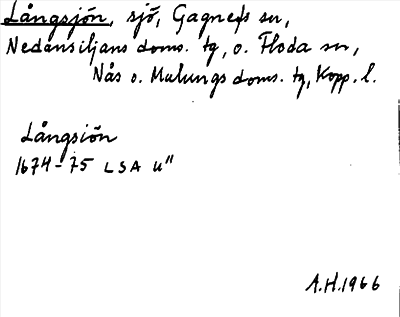 Långsjön, sjö, Gagnefs sn,
Nedansiljans doms. tg, o. Floda sn,
Nås o. Malungs doms. tg, Kopp. l.
Långsiön
1674-75 LSA U"
A.H. 1966